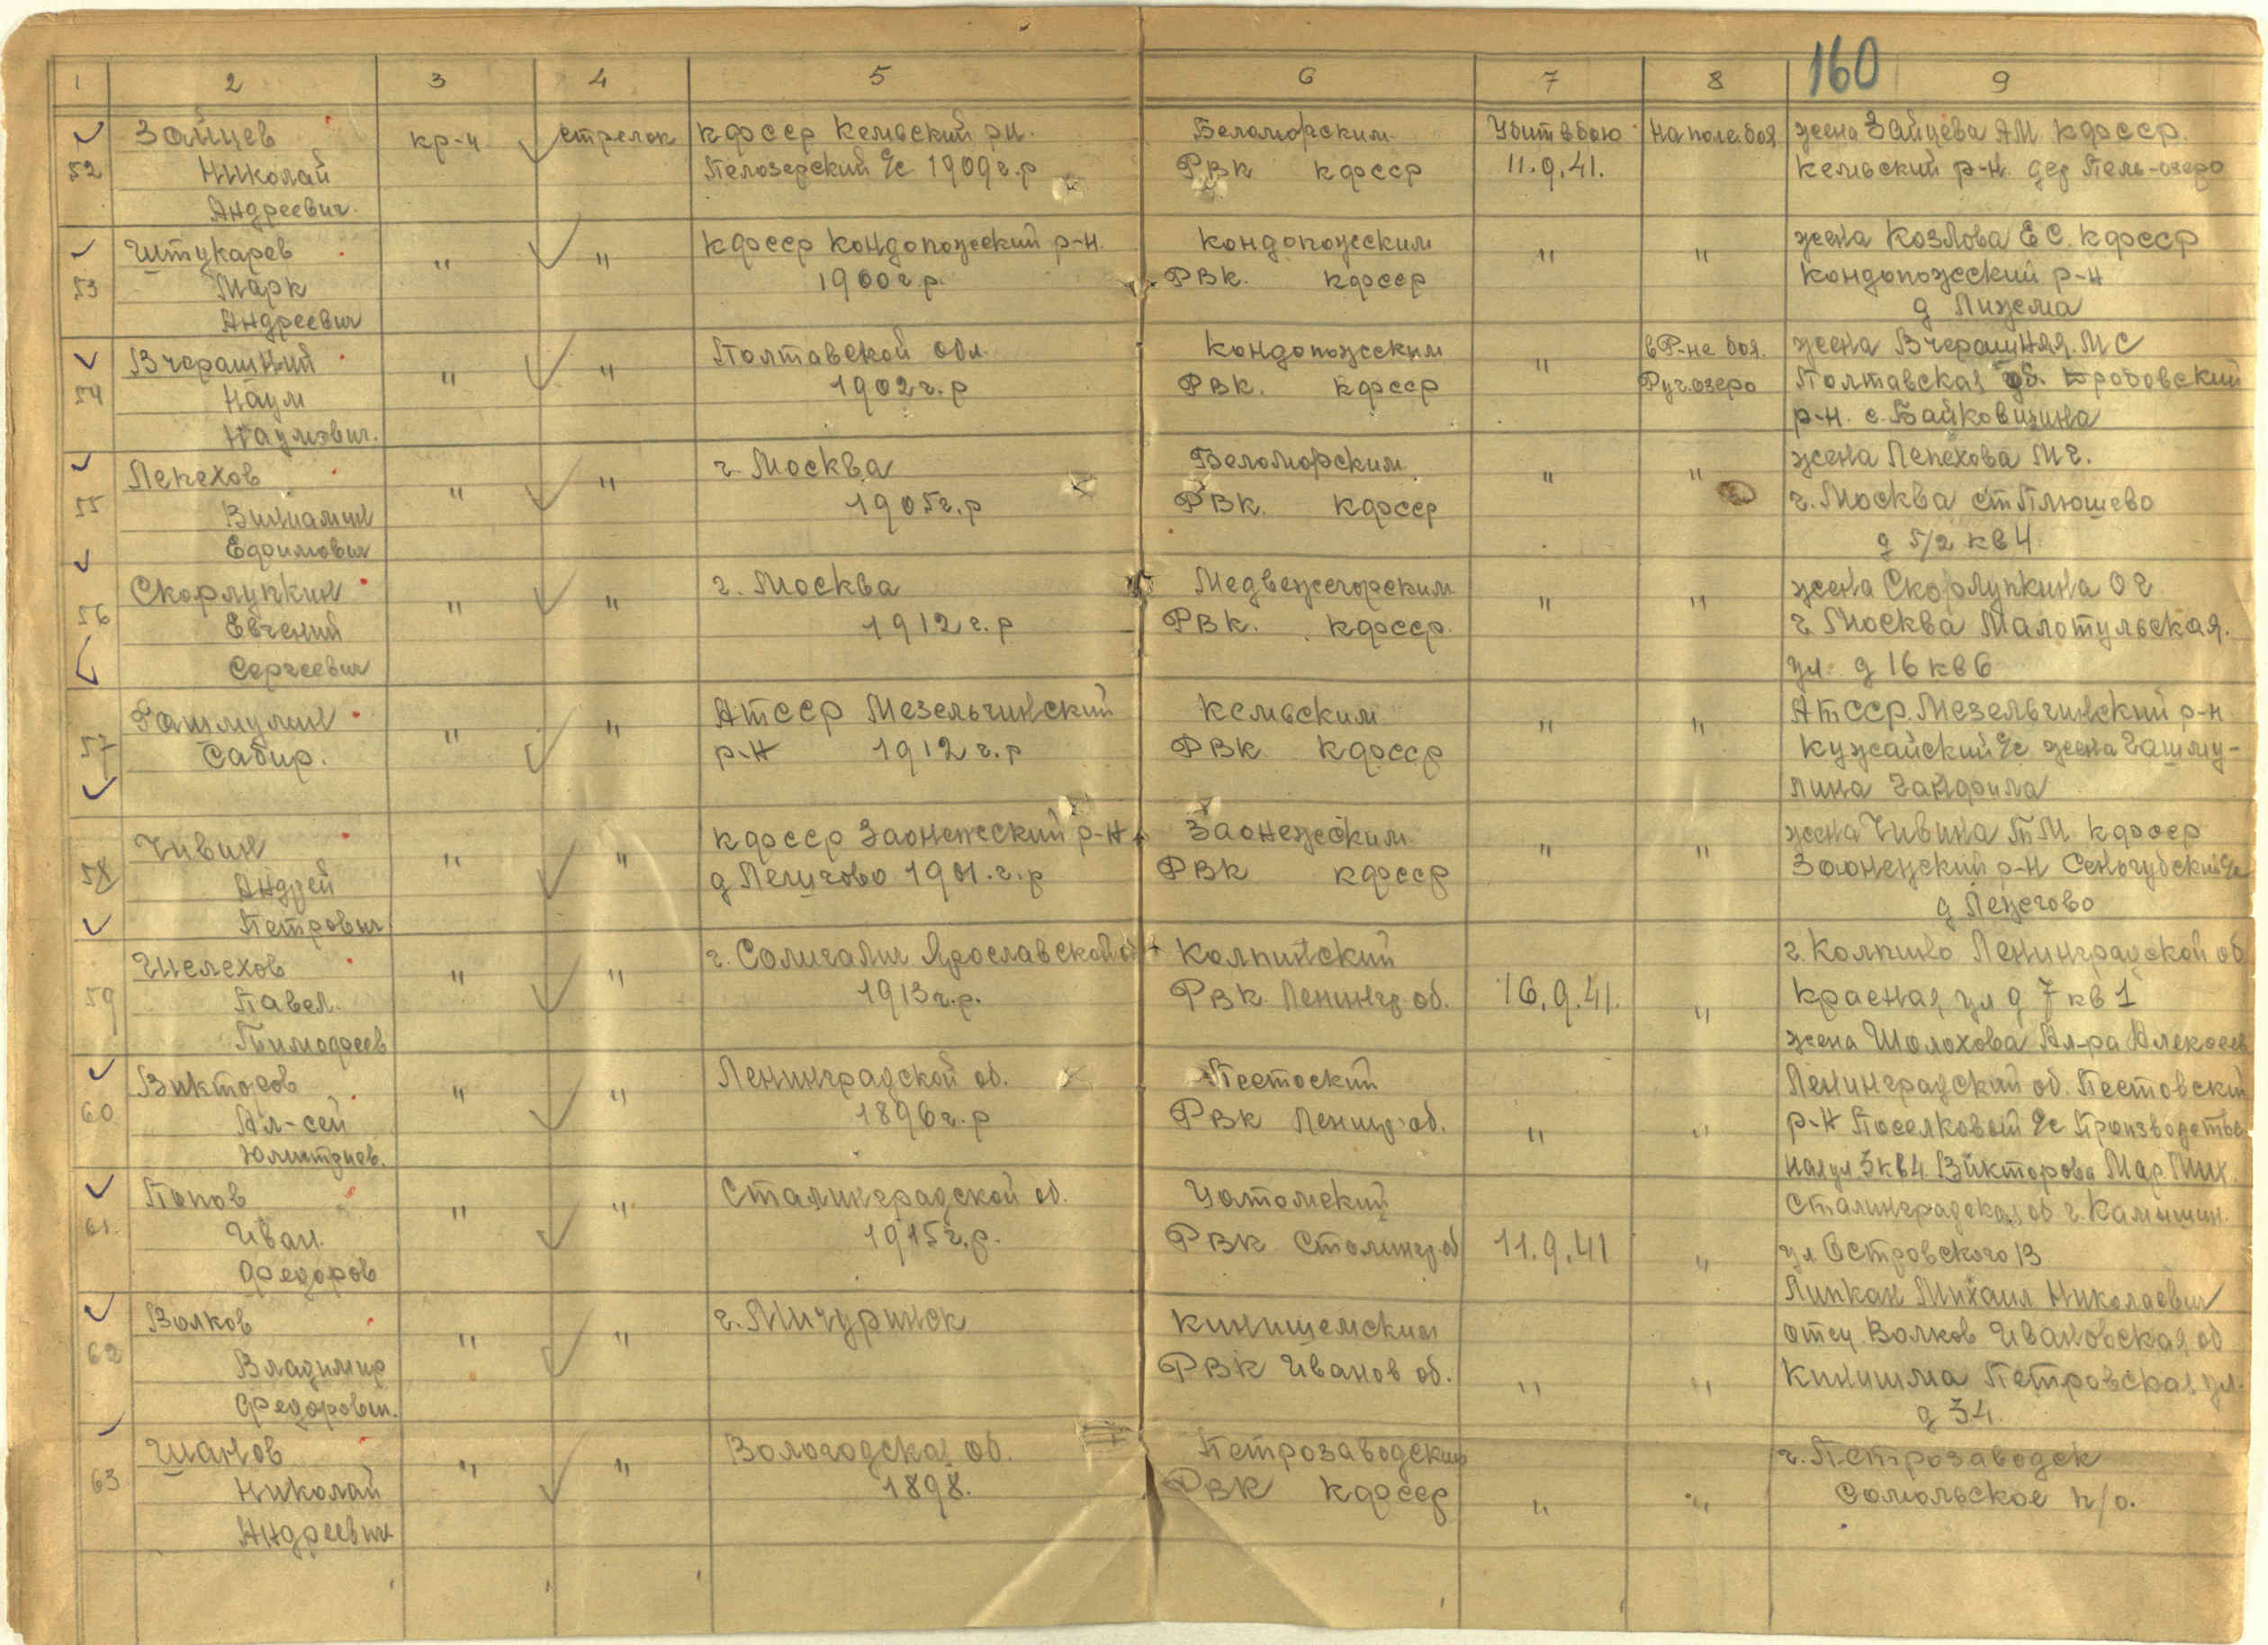 160
1 2 3 4 5 6 7 8 9
52 Зайцев Николай Андреевич кр-ц стрелок КФССР Кемьский рн. Пелозерский с/с 1909 г.р Беломорским РВК КФССР Убит в бою 11.9.41. На поле боя жена Зайцева АМ КФССР
Кемьский р-н дер Пель-озеро
53 Штукарев Марк Андреевич " " КФССР Кондопожский р-н. 1900 г.р. Кондопожским РВК. КФССР " " жена Козлова ЕС. КФССР
Кондопожский р-н
д Лижема
54 Вчерашний Наум Наумович. " " Полтавской обл. 1902 г.р Кондопожским РВК. КФССР " в Р-не боя. Руг.озеро жена Вчерашняя. МС
Полтавская об.
р-н. с. Байковщина
55 Лепехов Виниамин Ефимович " " г. Москва 1905 г.р Беломорским РВК. КФССР " " жена Лепехова МГ.
г. Москва ст Плющево
д 5/2 кв 4.
56 Скорлупкин Евгений Сергеевич " " г. Москва 1912 г.р Медвежегорским РВК. КФССР. " " жена Скорлупкина О Г
г. Москва Малотульская.
ул. д 16 кв 6
57 Гашмулин Сабир. " " АТССР Мезельчинский р-н 1912 г.р Кемьским РВК КФССР " " АТССР. Мезельчинский р-н
Кужайский с/с жена Гашму-
лина
58 Чивин Андрей Петрович " " КФССР Заонежский р-н д 1901. г.р Заонежским РВК КФССР " " жена Чивина ТМ КФССР
Заонежский р-н Сеньгубский с/с
д
59 Шелехов Павел. Тимофеев " " г. Солигалич Ярославской о 1913 г.р. Колпинский РВК Ленингр об. 16.9.41. " г. Колпино Ленинградской об
Красная ул д 7 кв 1
жена Шолохова Ал-ра Алексеев
60 Викторов Ал-сей " " Ленинградской об. 1896 г.р Пестоский РВК Ленингр об. " " Ленинградский об. Пестовский
р-н Поселковый с/с Производстве
ная ул. 3 кв 4. Викторова Мар. Мих.
61. Попов Иван. Федоров " " Сталинградской об. 1915 г.р. РВК Сталингр. об 11.9.41 " Сталинградская об г. Камышин.
ул Островского 13
Липкан Михаил Николаевич
62 Волков Владимир Федорович. " " г. Мичуринск Кинишемским РВК Иванов об. " " отец Волков Ивановская об
Кинишма Петровская ул.
д 34.
63 Шанов Николай Андреевич " " Вологодская об. 1898. Петрозаводским РВК КФССР " " г. Петрозаводск
Сомольское п/о.